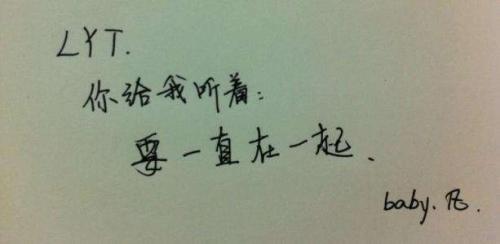 LYT.
你给我听着:
要一直在一起、
baby.凡.